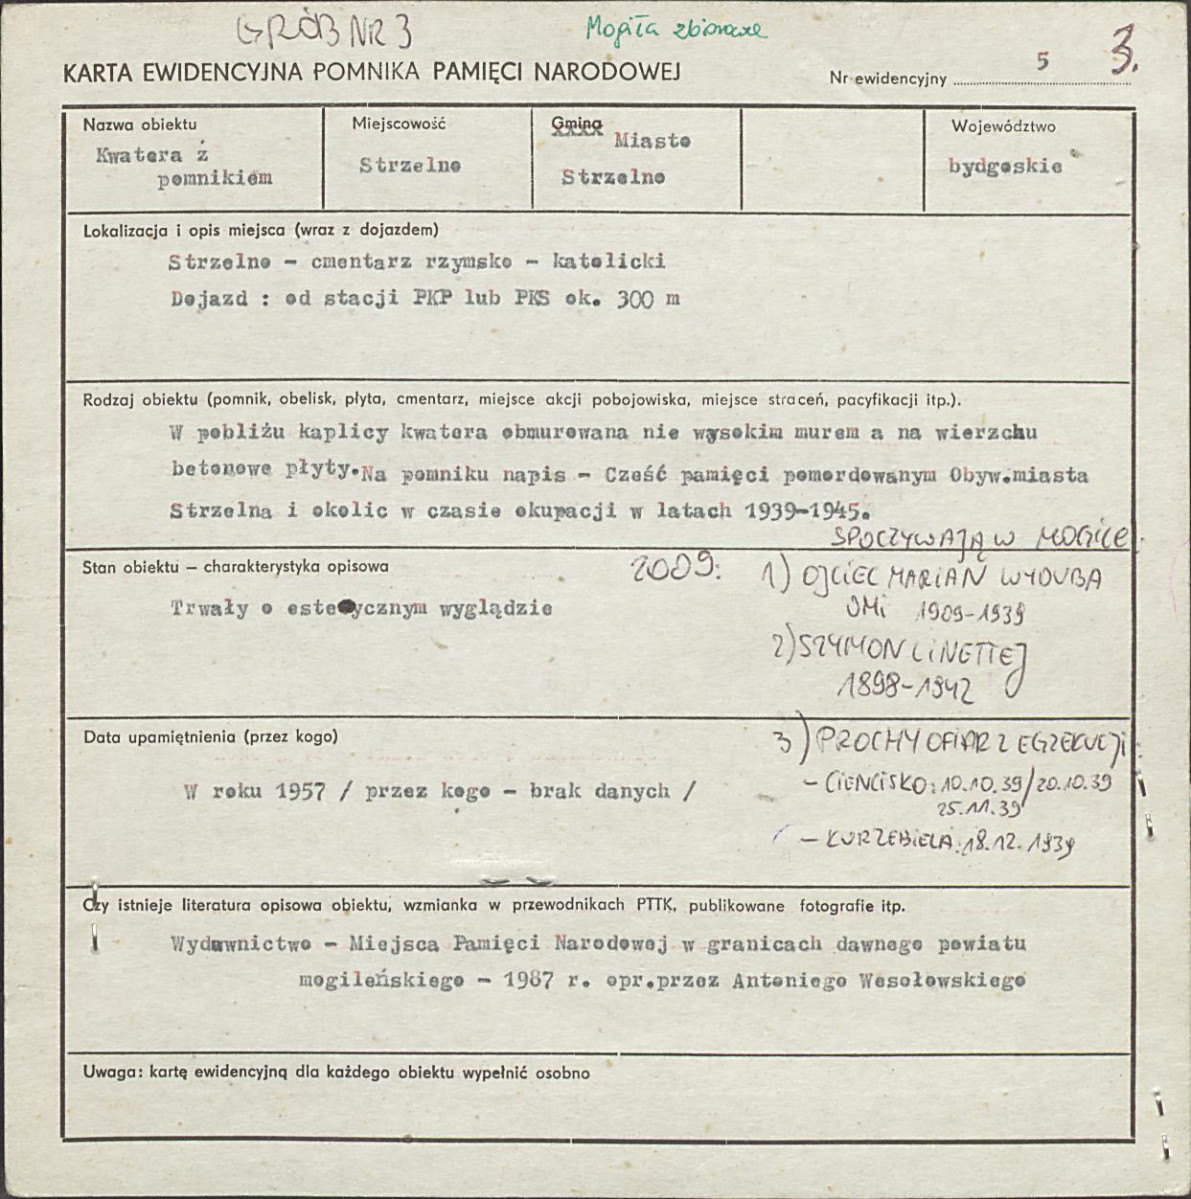 GRÓB NR 3
Mogiła zbiorowa
KARTA EWIDENCYJNA POMNIKA PAMIĘCI NARODOWEJ
Nr ewidencyjny 5 3.
Nazwa obiektu
Kwatera z
pomnikiem
Miejscowość
Strzelno
Gmina
Miasto
Strzelno
Województwo
bydgoskie
Lokalizacja i opis miejsca (wraz z dojazdem)
Strzelno - cmentarz rzymsko - katolicki
Dojazd : od stacji PKP lub PKS ok. 300 m
Rodzaj obiektu (pomnik, obelisk, płyta, cmentarz, miejsce akcji pobojowiska, miejsce straceń, pacyfikacji itp.).
W pobliżu kaplicy kwatera obmurowana nie wysokim murem a na wierzchu
betonowe płyty.Na pomniku napis - Cześć pamięci pomordowanym Obyw.miasta
Strzelna i okolic w czasie okupacji w latach 1939-1945.
SPOCZYWAJĄ W MOGILE:
Stan obiektu – charakterystyka opisowa
2009:
1) OJCIEC MARIAN WYDUBA
OMi 1909-1939
Trwały o estetycznym wyglądzie
2) SZYMON LINETTEJ
1898-1942
Data upamiętnienia (przez kogo)
3) PROCHY OFIAR Z EGZEKUCJI:
W roku 1957 / przez kogo - brak danych /
- CIENCISKO: 10.10.39/20.10.39
25.11.39
- KURZEBIELA: 18.12.1939
Czy istnieje literatura opisowa obiektu, wzmianka w przewodnikach PTTK, publikowane fotografie itp.
Wydawnictwo - Miejsca Pamięci Narodowej w granicach dawnego powiatu
mogileńskiego - 1987 r. opr.przez Antoniego Wesołowskiego
Uwaga: kartę ewidencyjną dla każdego obiektu wypełnić osobno